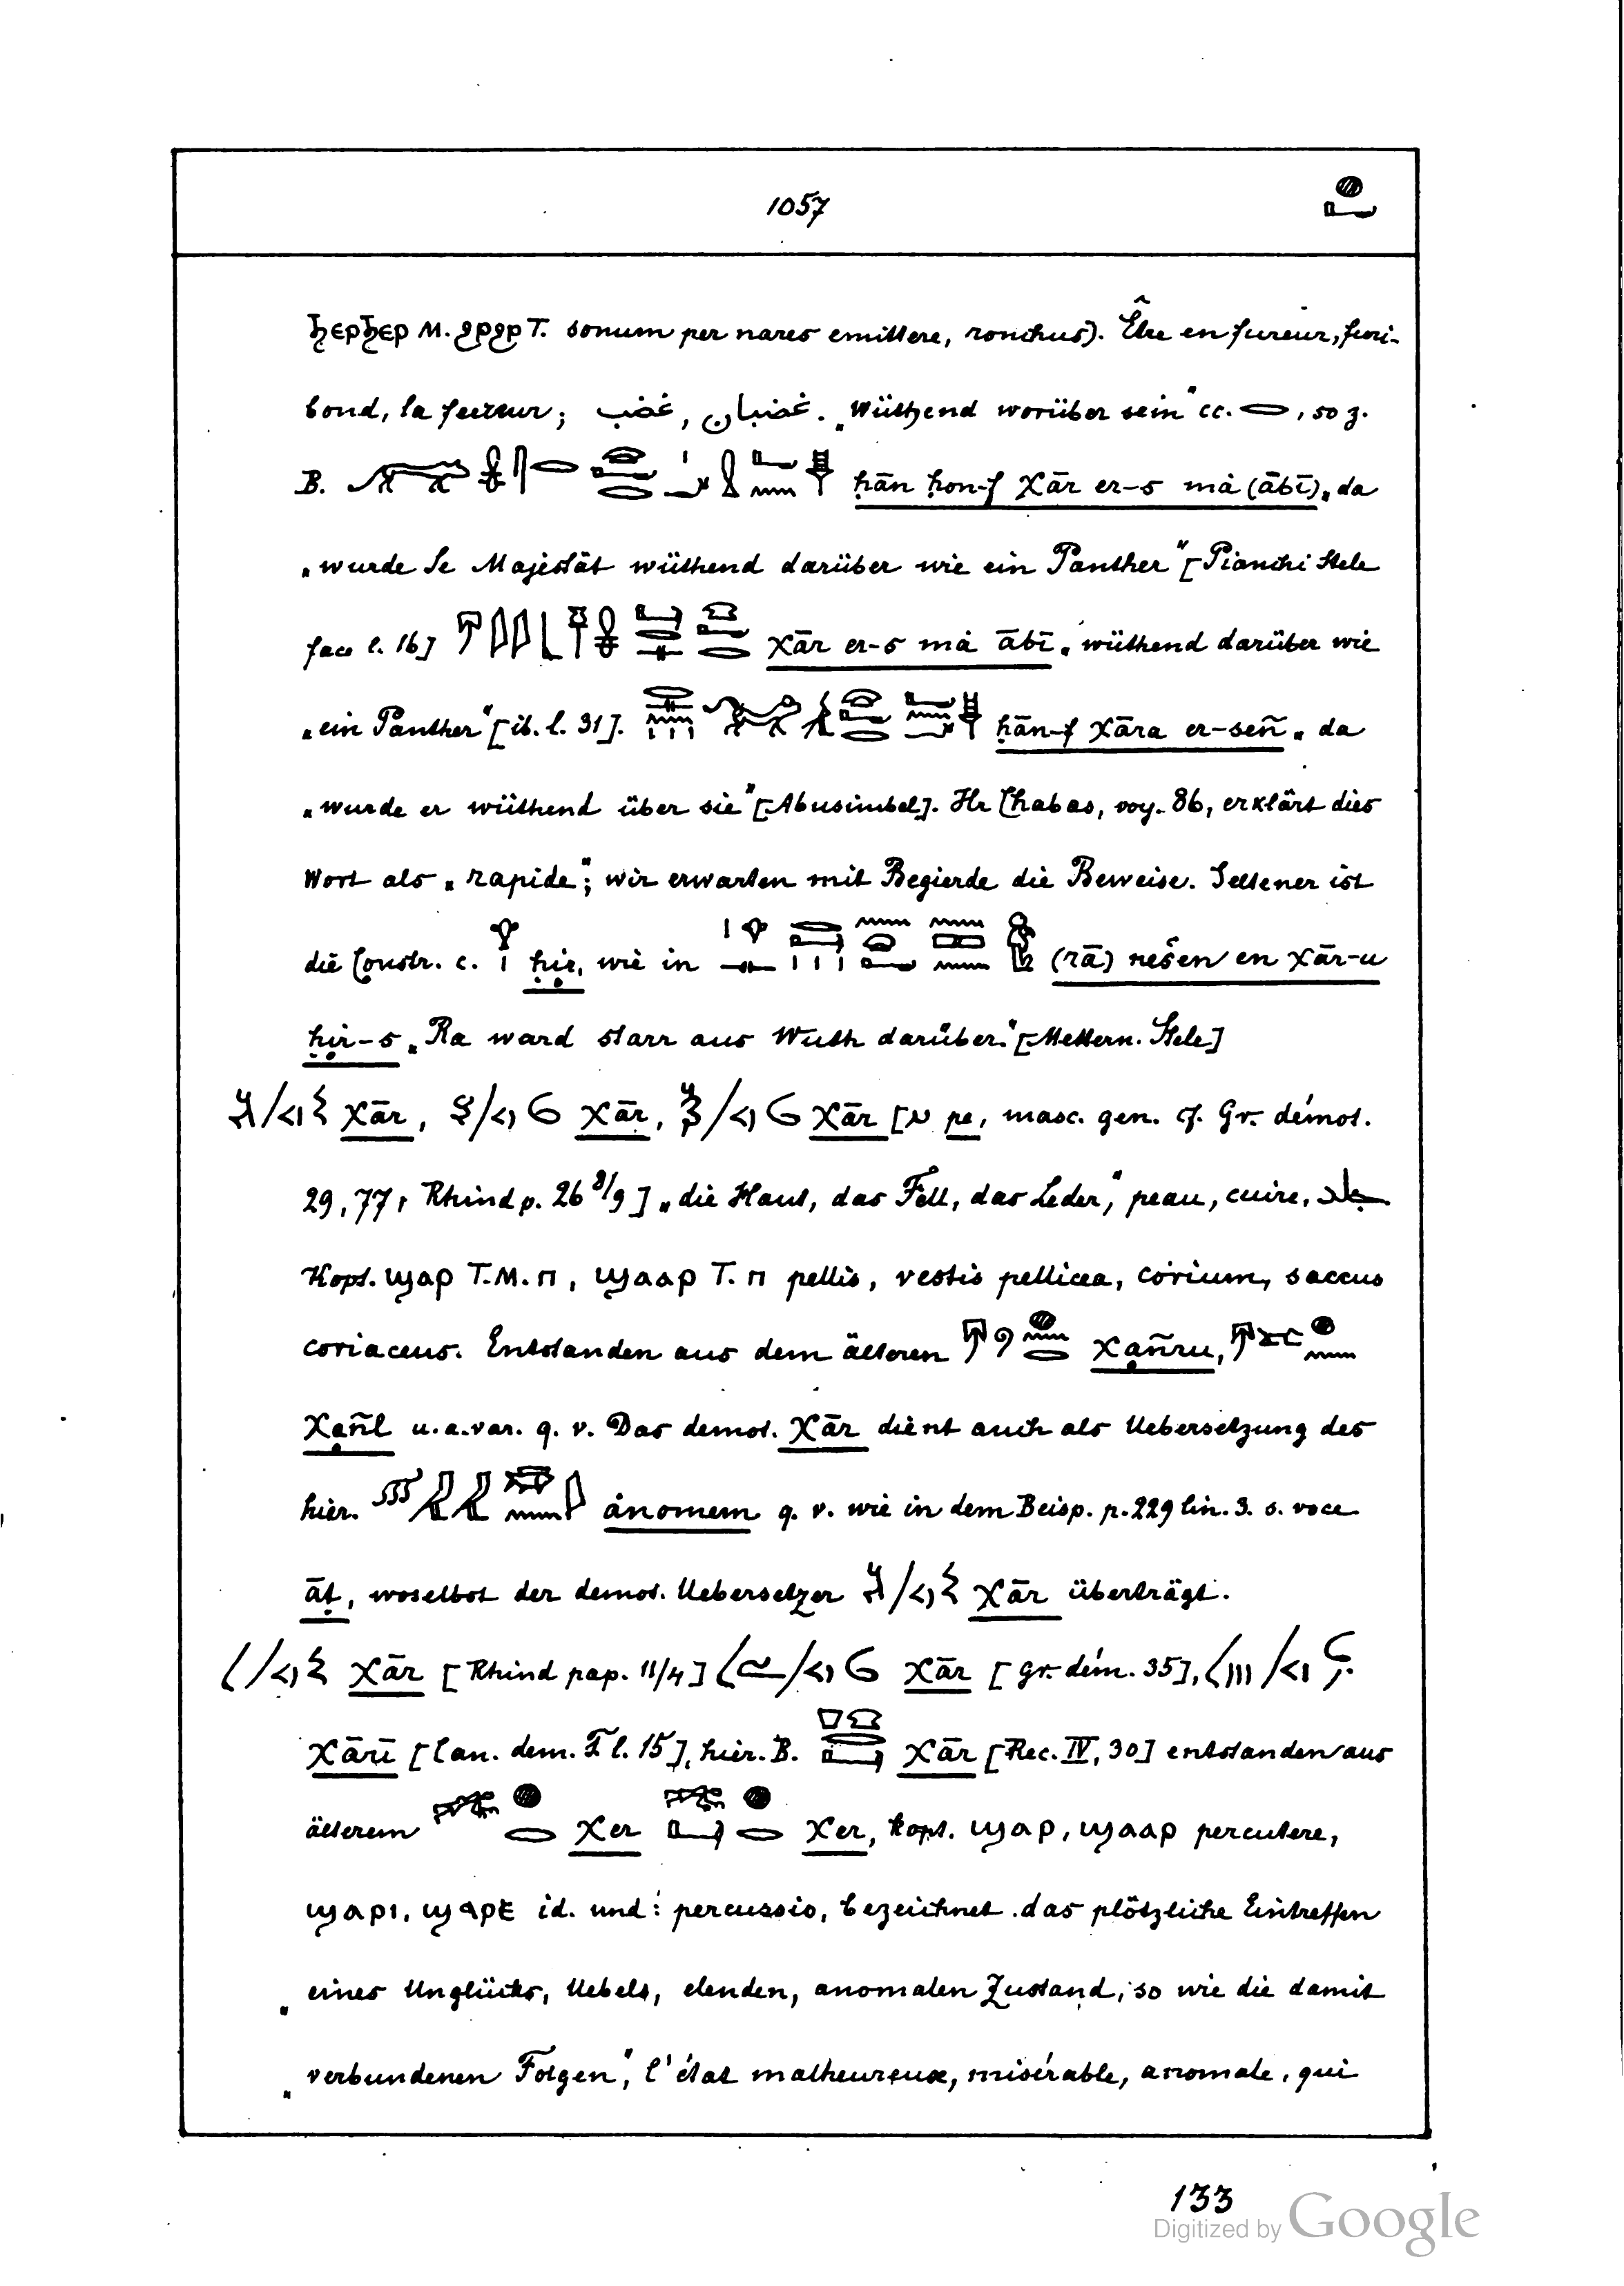 1057
ϧⲉⲣϧⲉⲣ M. ϩⲣϩⲣ T. sonum per nares emittere, ronchus). Être en fureur, furi-
bond, la fureur; غضب, غضبان. „Wüthend worüber sein“ cc. 𓂋, so z.
B. ḥān ḥon-f χār er-s mȧ (ābī) „da
„wurde Se Majestät wüthend darüber wie ein Panther“ [Pianchi Stele
face l. 16] χār er-s mȧ ābī „wüthend darüber wie
„ein Panther“ [ib. l. 31]. ḥān-f χāra er-señ „da
„wurde er wüthend über sie“ [Abusimbel]. Hr Chabas, voy. 86, erklärt dies
Wort als „rapide“; wir erwarten mit Begierde die Beweise. Seltener ist
die Constr. c. ḥir, wie in (rā) nešen en χār-u
ḥir-s „Ra ward starr aus Wuth darüber.“ [Mettern. Stele]
χār, χār, χār [pe, masc. gen. cf. Gr. démot.
29, 77, Rhind p. 26 8/9] „die Haut, das Fell, das Leder“, peau, cuire, جلد
Kopt. ϣⲁⲣ T.M. ⲡ, ϣⲁⲁⲣ T. ⲡ pellis, vestis pellicea, corium, saccus
coriaceus. Entstanden aus dem älteren χạñru,
χạñl u. a. var. q. v. Das demot. χār dient auch als Uebersetzung des
hier. ȧnomem q. v. wie in dem Beisp. p. 229 lin. 3. s. voce
āṭ, woselbst der demot. Uebersetzer χār überträgt.
χār [Rhind pap. 11/4] χār [gr. dém. 35],
χārī [Can. dem. l. 15], hier. B. χār [Rec. IV, 30] entstanden aus
älterem χer χer, kopt. ϣⲁⲣ, ϣⲁⲁⲣ percutere,
ϣⲁⲣⲓ, ϣⲁⲣⲉ id. und: percussio, bezeichnet das plötzliche Eintreffen
„eines Unglücks, Uebels, elenden, anomalen Zustand, so wie die damit
„verbundenen Folgen“, l'état malheureux, misérable, anomale, qui
133
Digitized by Google